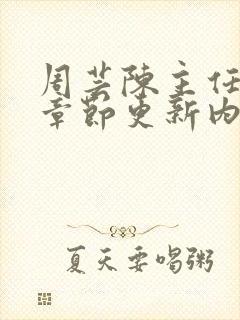 周芸陈主任
章节更新内
夏天要喝粥